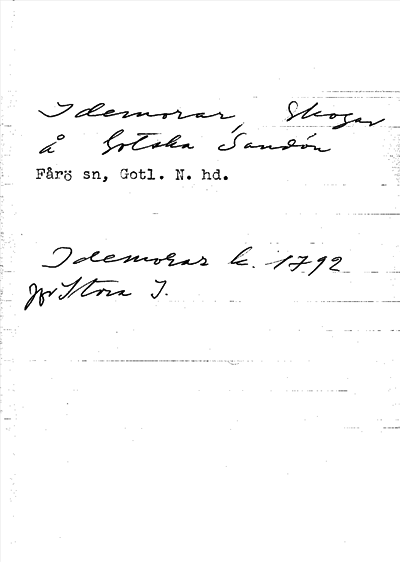 Idemorar, Skogar
å Gotska Sandön
Fårö sn, Gotl. N. hd.
Idemorar k. 1792
jfr Stora I.